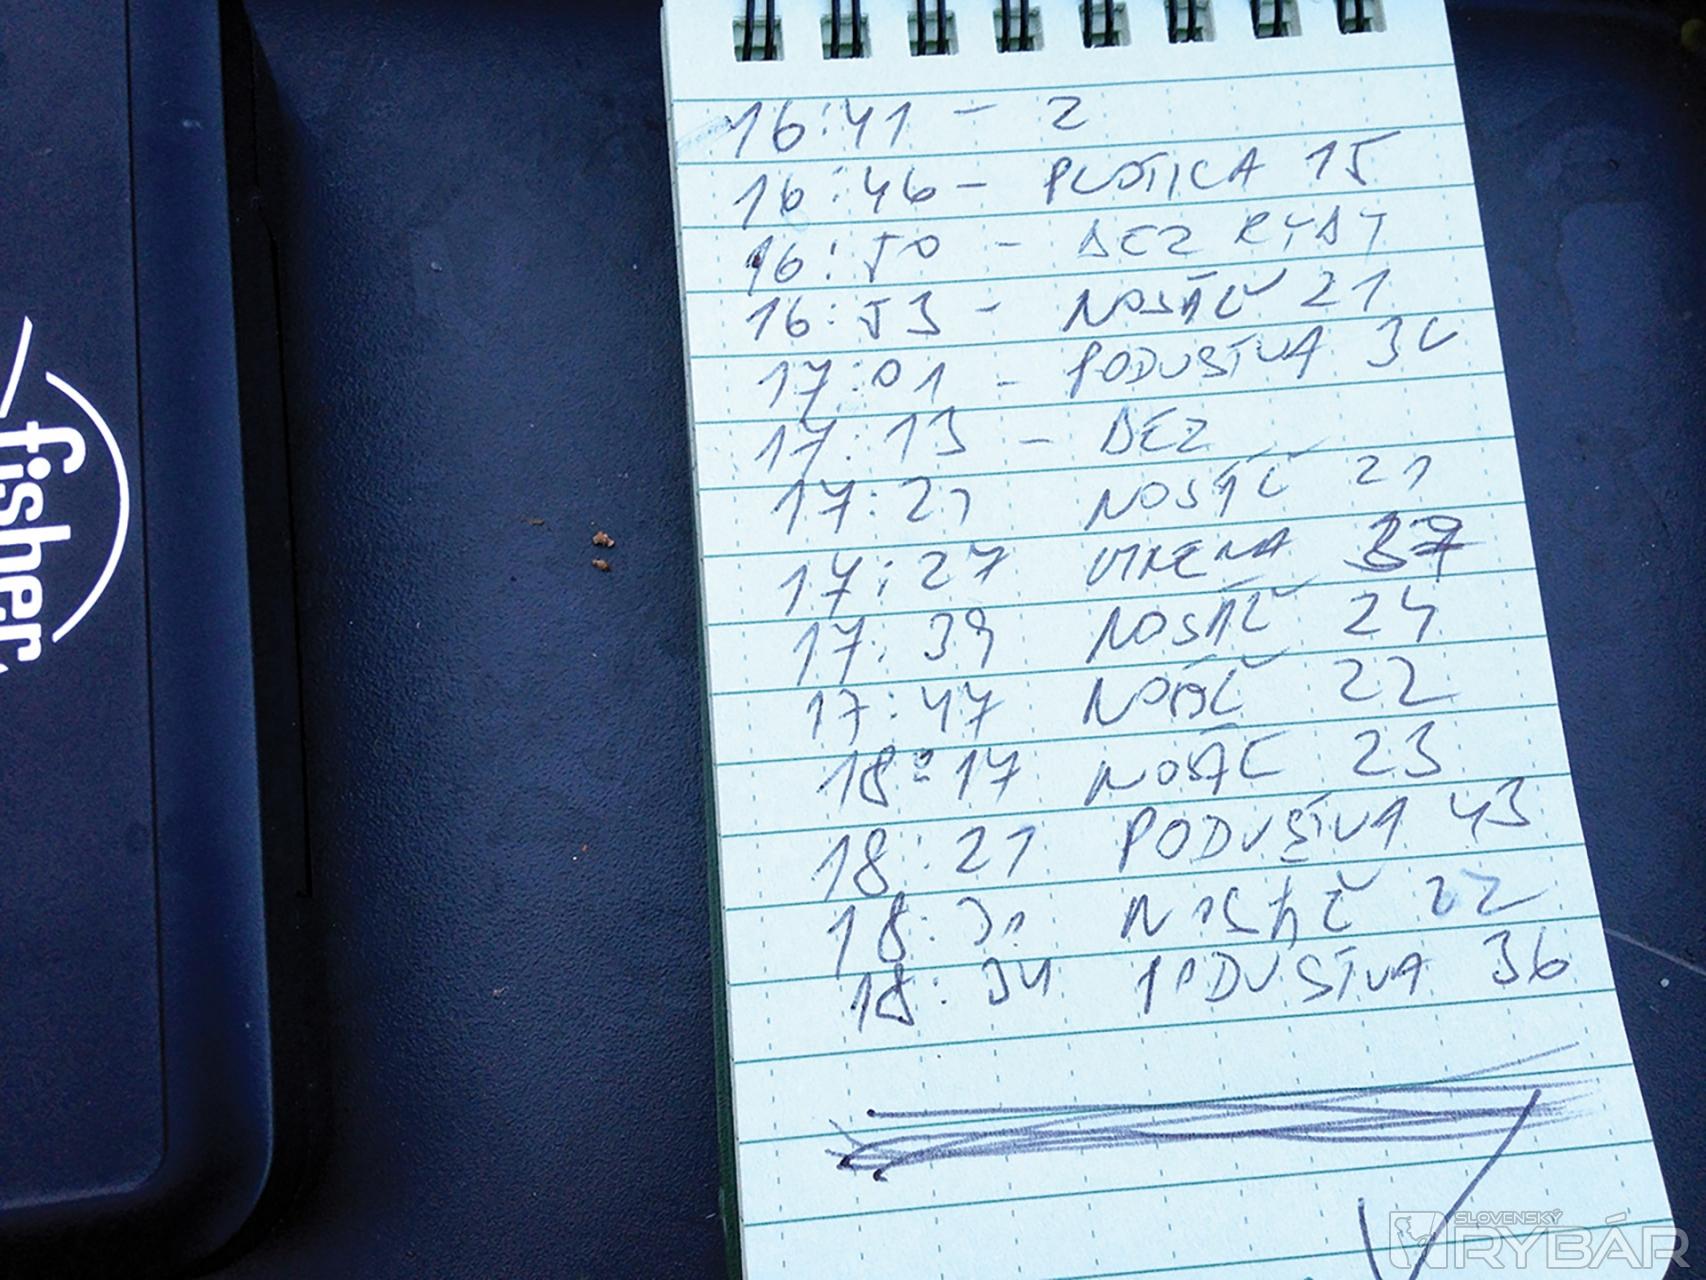 fisher
16:41 - 2
16:46 - PLOTICA 15
16:50 - BEZ RYBY
16:53 - NOSÁĽ 21
17:01 - PODUSTVA 36
17:13 - BEZ
17:21 NOSÁĽ 21
17:27 MRENA 37
17:39 NOSÁĽ 24
17:47 NOSÁĽ 22
18:17 NOSÁĽ 23
18:21 PODUSTVA 43
18:31 NOSÁĽ 22
18:34 PODUSTVA 36
SLOVENSKÝ
RYBÁR